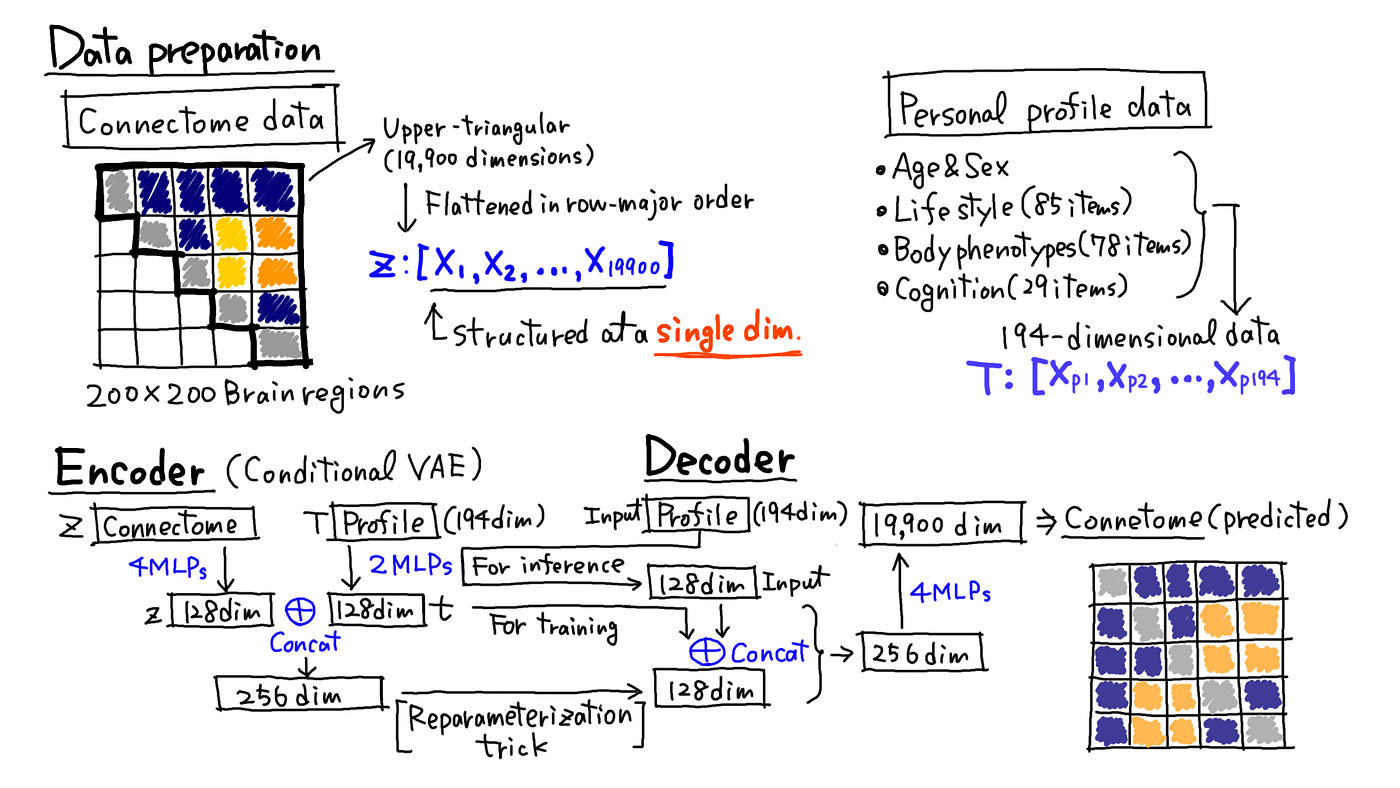 Data preparation
Connectome data
Upper-triangular
(19,900 dimensions)
Flattened in row-major order
Z:[X1,X2,...,X19900]
Structured at a single dim.
200×200 Brain regions
Personal profile data
•Age&Sex
•Life style (85 items)
•Body phenotypes(78 items)
•Cognition(29 items)
194-dimensional data
T: [Xp1,Xp2,...,Xp194]
Encoder (Conditional VAE)
Z Connectome
T Profile (194dim)
4MLPs
2MLPs
z 128dim ⊕ 128dim t
Concat
256 dim
[Reparameterization
trick]
Decoder
Input Profile (194dim)
For inference
128dim Input
For training
⊕ Concat
128dim
256 dim
4MLPs
19,900 dim ⇒ Connetome (predicted)